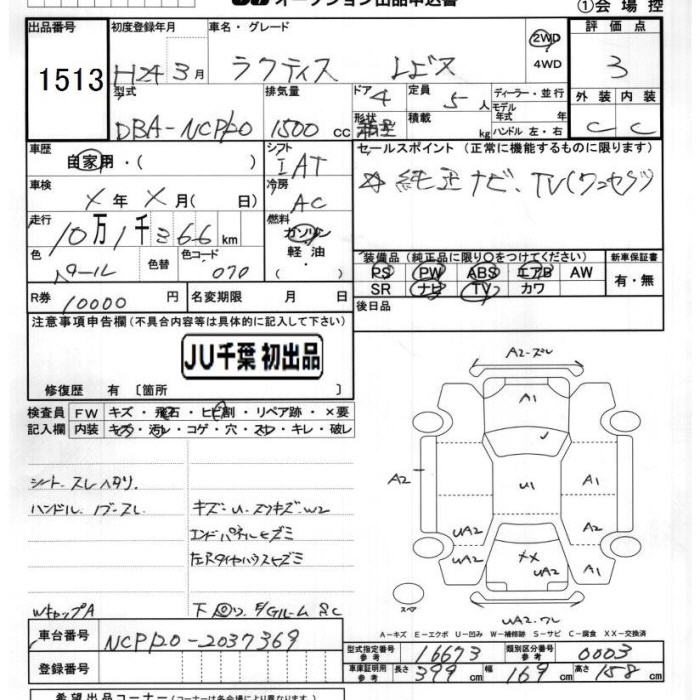 オークション出品申込書
①会場控
出品番号 初度登録年月 車名・グレード 2WD 評価点
1513 H24 3月 ラクティス レピス 4WD 3
型式 排気量 ドア 4 定員 5人 ディーラー・並行 外装 内装
DBA-NCP120 1500cc 形状 箱型 積載 kg モデル年式 年 ハンドル 左・右 C C
車歴 シフト セールスポイント(正常に機能するものに限ります)
自家用・( ) IAT ☆純正ナビ、TV(ワンセグ)
車検 冷房
X年X月( 日) AC
走行 燃料
10万1千366km ガソリン
軽油
・( )
色 色替 色コード 装備品(純正品に限り○をつけてください) 新車保証書
パール 070 PS PW ABS エアB AW 有・無
R券 10000円 名変期限 月 日 SR ナビ TV カワ
後日品
注意事項申告欄(不具合内容等は具体的に記入して下さい)
JU千葉 初出品
修復歴 有〔箇所 〕
検査員 FW キズ・飛石・ヒビ割・リペア跡・×要
記入欄 内装 キズ・汚レ・コゲ・穴・スレ・キレ・破レ
シート スレ ヘタリ
ハンドル、ノブ-スレ キズ-U-スリキズ-W2
エンドパネルヒズミ
左Rタイヤハウスヒズミ
WキャップA
A2-ズレ
A1
A2 U1 A1
A2
UA2 UA2
XX UA2 A1
スペア
UA2-ワレ
A-キズ E-エクボ U-凹み W-補修跡 S-サビ C-腐食 XX-交換済
車台番号 NCP120-2037369
型式指定番号 参考 16673 類別区分番号 参考 0003
登録番号 車庫証明用 参考 長さ 399cm 幅 169cm 高さ 158cm
希望出品コーナー(各コーナーは各会場により異なります)